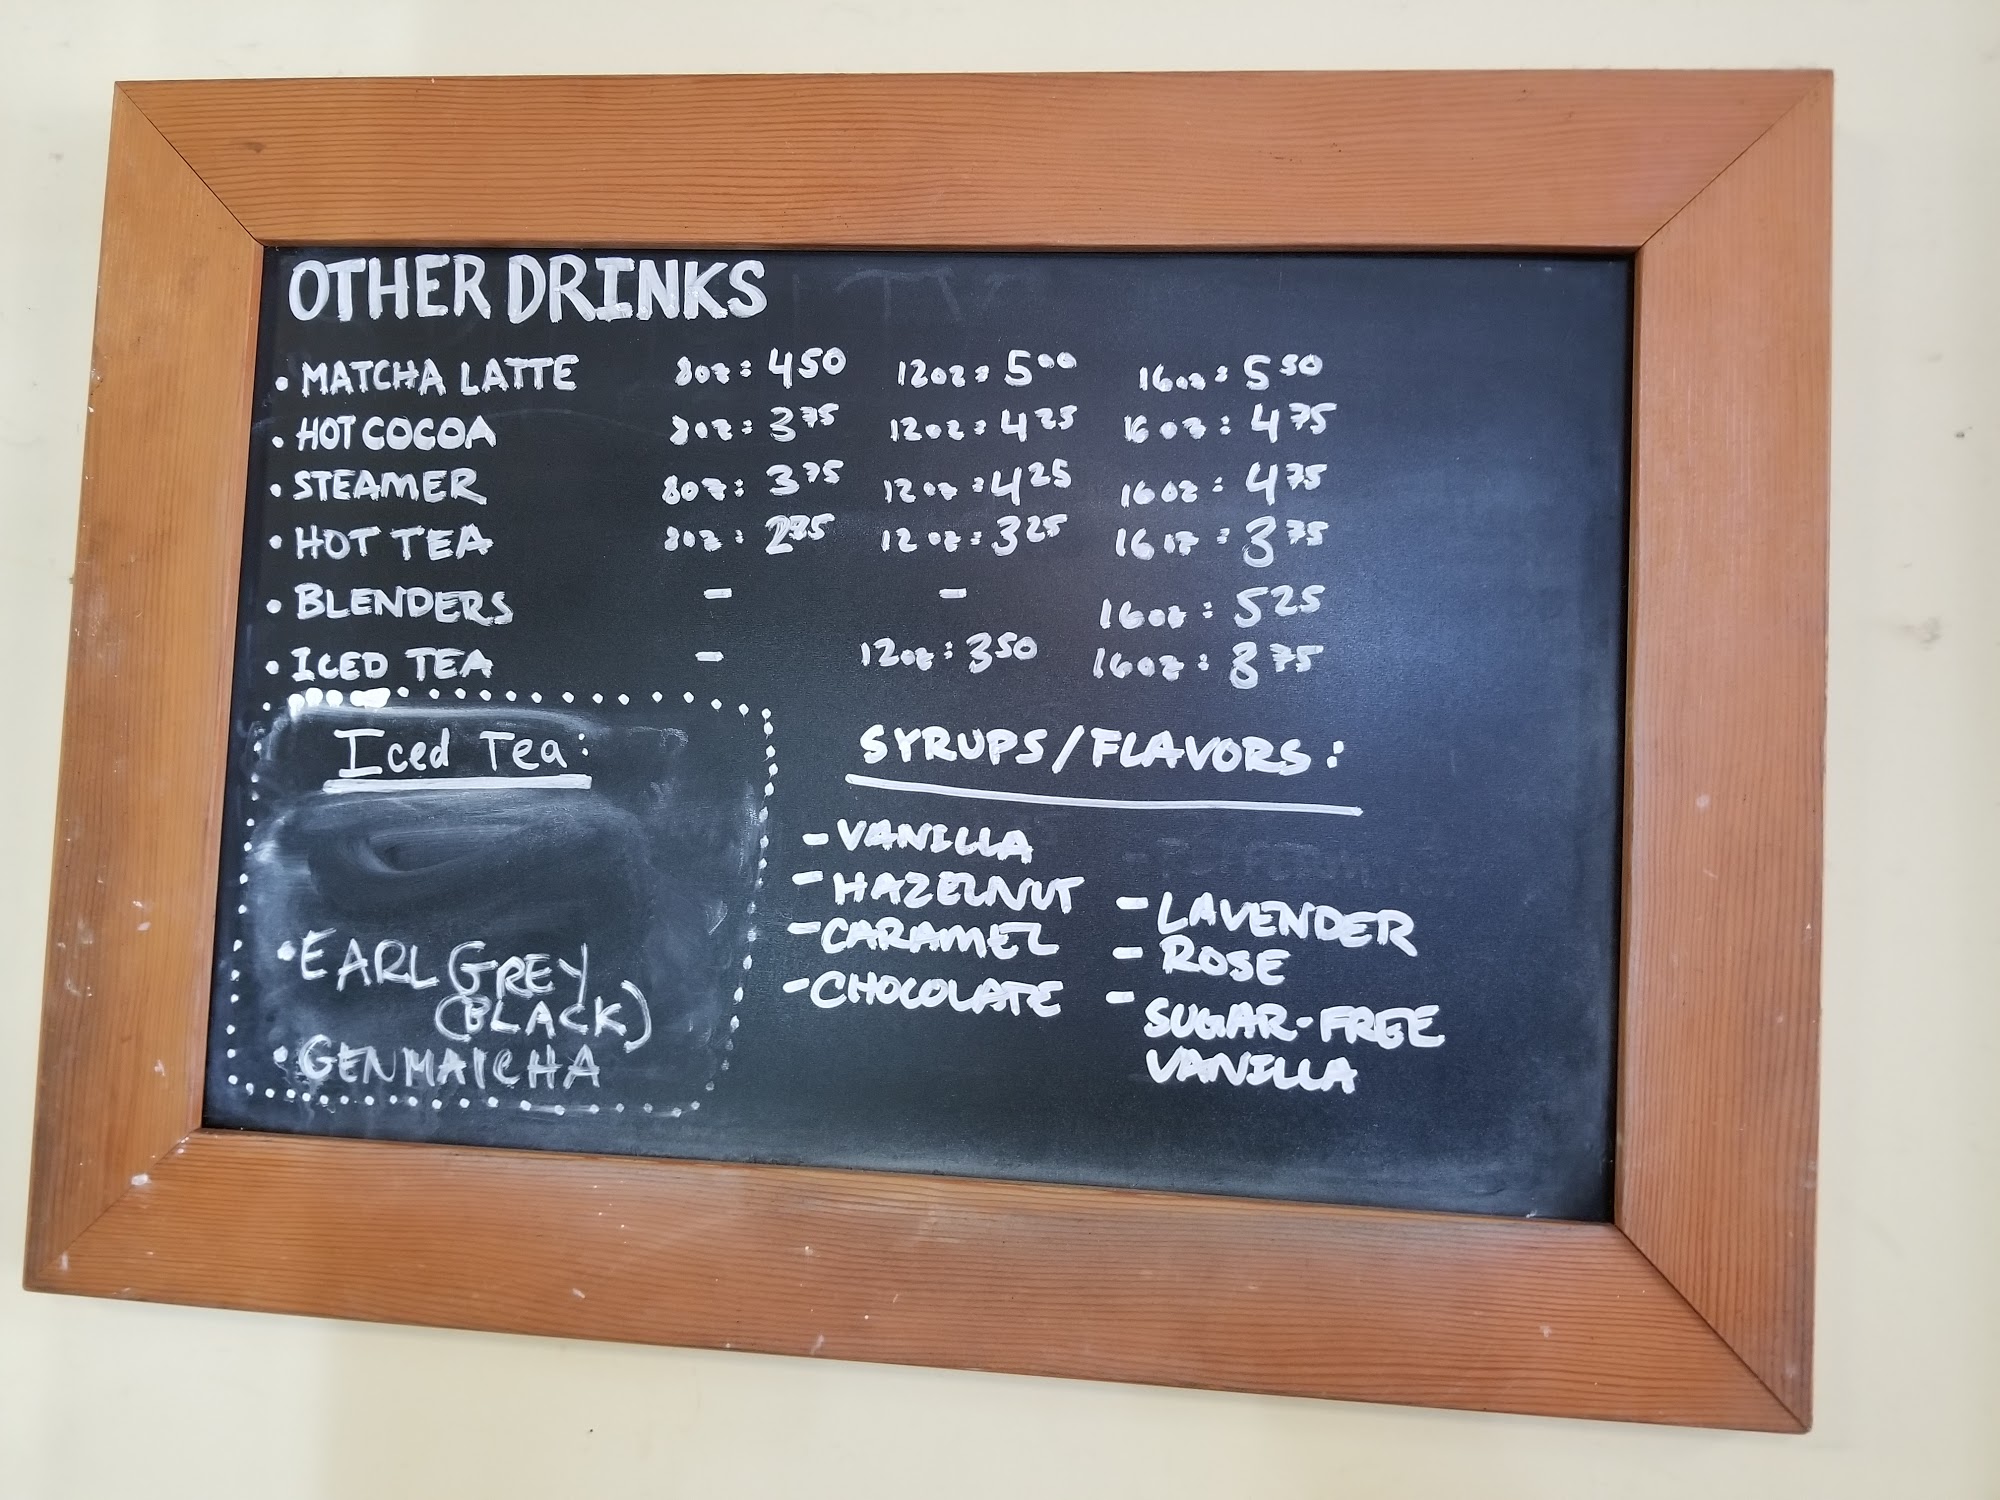 OTHER DRINKS
• MATCHA LATTE 8oz: 450 12oz: 500 16oz: 550
• HOT COCOA 8oz: 375 12oz: 425 16oz: 475
• STEAMER 8oz: 375 12oz: 425 16oz: 475
• HOT TEA 8oz: 12oz: 325 16oz: 375
• BLENDERS - - 16oz: 525
• ICED TEA - 12oz: 350 16oz: 375
Iced Tea:
• EARL GREY
(BLACK)
• GENMAICHA
SYRUPS/FLAVORS:
- VANILLA
- HAZELNUT
- CARAMEL
- CHOCOLATE
- LAVENDER
- ROSE
- SUGAR-FREE
VANILLA